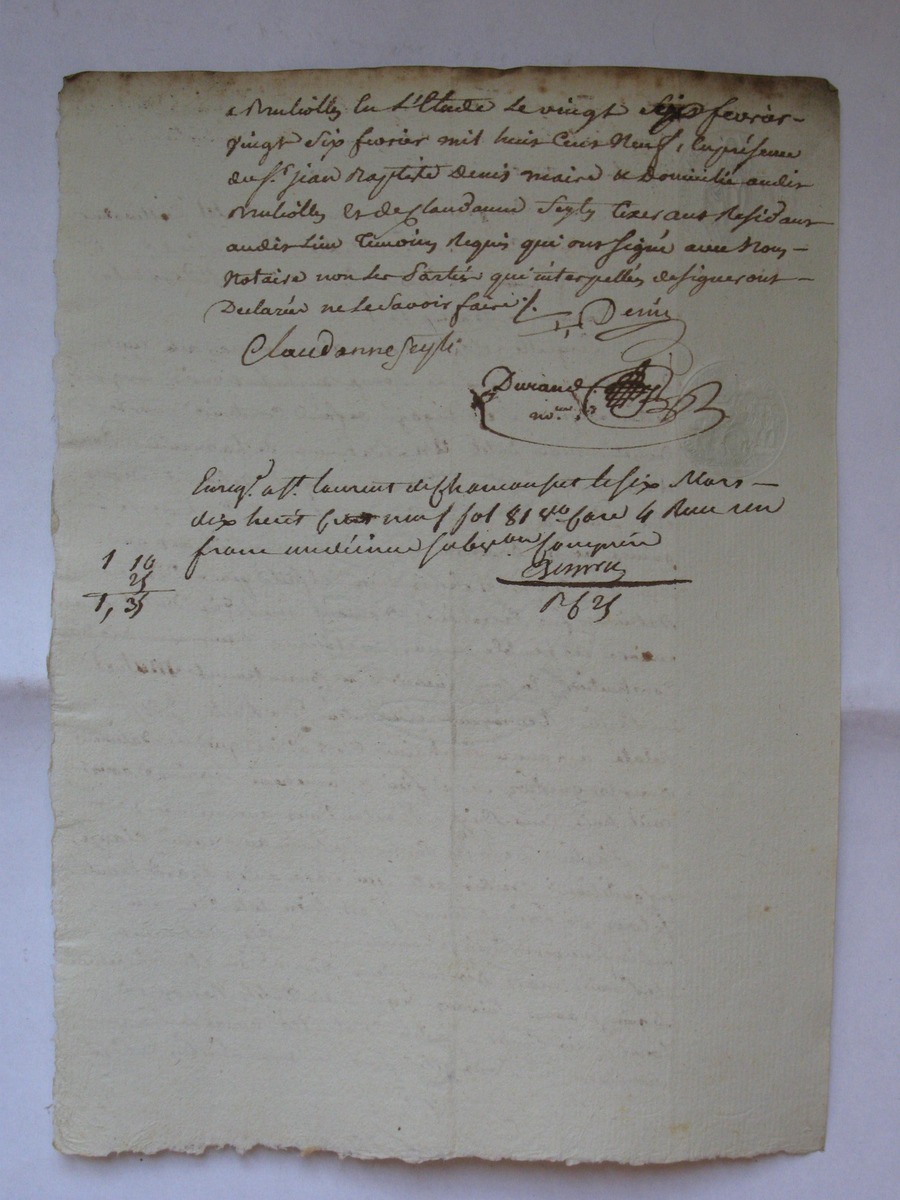 a Bruliolles en L'Etude Le vingt six fevrier
vingt Six fevrier mil huit Cent Neuf, En présence
du Sr. jean Baptiste Denis maire & Domicilié audit
Brulioles Et de Claudanne Seyts tixerant Residant
audit Lieu Temoins Requis qui ont Signé avec Nous
Notaire non les Parties qui interpellés de signer ont
Declarée ne Le Savoir faire ./.
Denis
Claudanne Seyts
Durand
nore.
Enregt. a St. laurent de Chamousset le six Mars
dix huit Cent neuf fol 81 vo Case 4 Recu un
franc un décime subvon Comprise
1 10
25
1, 35
1 f 25